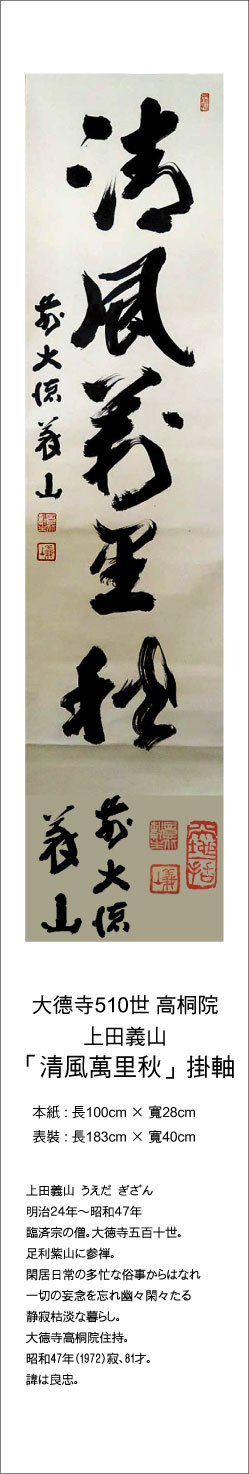 清風萬里秋
前大徳義山
前大徳
義山
大德寺510世 高桐院
上田義山
「清風萬里秋」掛軸
本紙：長100cm × 寬28cm
表裝：長183cm × 寬40cm
上田義山 うえだ ぎざん
明治24年〜昭和47年
臨済宗の僧。大徳寺五百十世。
足利紫山に参禅。
閑居日常の多忙な俗事からはなれ
一切の妄念を忘れ幽々閑々たる
静寂枯淡な暮らし。
大徳寺高桐院住持。
昭和47年（1972）寂、81才。
諱は良忠。